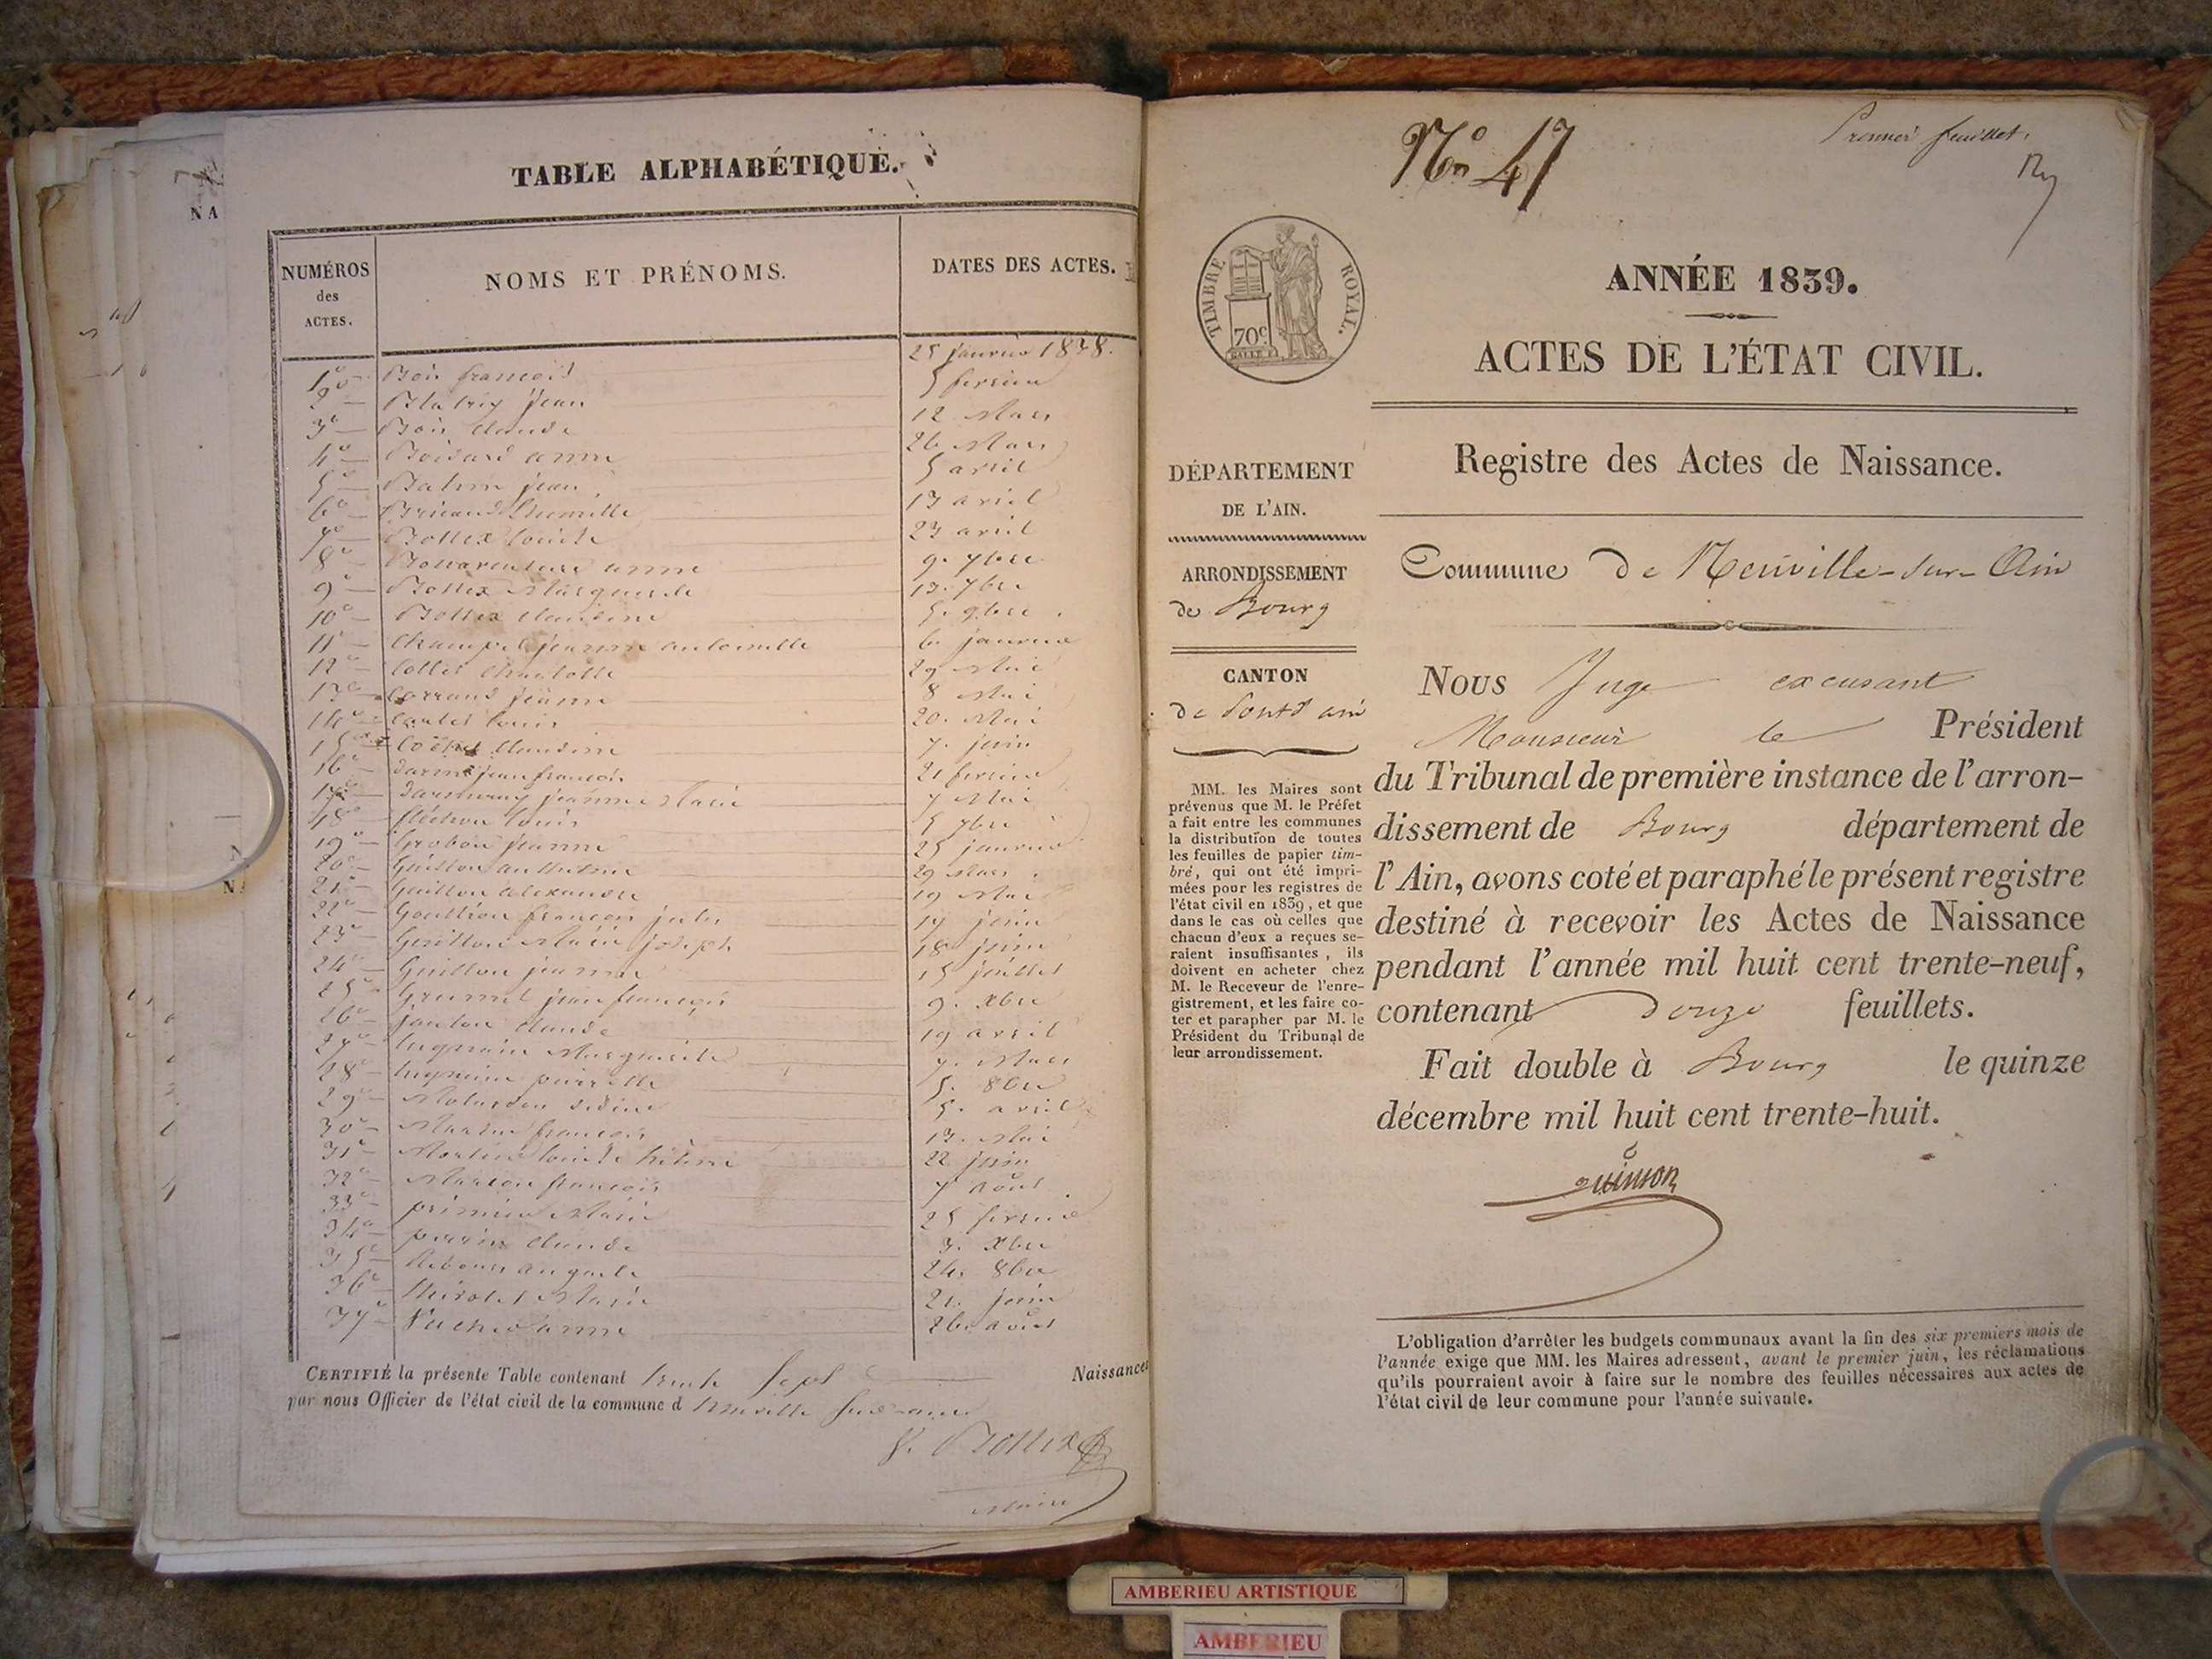 TABLE ALPHABÉTIQUE.
NUMÉROS
des
ACTES.
NOMS ET PRÉNOMS.
DATES DES ACTES.
1º Bois françois 25 janvier 1838.
2º Blatrix jean 5 fevrier
3º Bois Claude 12 Mars
4º Boisard anne 26 Mars
5º jean 5 avril
6º 13 avril
7º Bottex Louise 23 avril
8º Bonaventure anne 9. 7bre
9º Bottex Marguerite 13. 7bre
10º Bottex Claudine 5. 9bre
11º jeanne antoinette 6 janvier
12º Collet Charlotte 29 Mai
13º Corrand jeanne 8 Mai
14º Louis 20. Mai
15º Claudine 7. juin
16º jean françois 21 fevrier
17º jeanne Marie 7 Mai
18º fléchon Louis 5 7bre
19º Grobon jeanne 25 janvier
20º Guillon anthelme 29 Mars
21º Guillon alexandre 19 Mai
22º françois jules 17 juin
23º Guillon Marie joseph 18 juin
24º Guillon jeanne 15 juillet
25º Grumel jean françois 9. Xbre
26º janton Claude 19 avril
27º Marguerite 7. Mars
28º pierrette 5. 8bre
29º 5. avril
30º françois 13. Mai
31º Louise hélène 22 juin
32º françois 7 août
33º Marie 25 fevrier
34º perrin Claude 3. Xbre
35º 24. 8bre
36º Marie 21. juin
37º anne 26. août
CERTIFIÉ la présente Table contenant trente sept Naissances
par nous Officier de l'état civil de la commune d neuville sur-ain
Bottex
Maire
Nº 47
Premier feuillet.
TIMBRE ROYAL.
70c
ANNÉE 1839.
ACTES DE L'ÉTAT CIVIL.
Registre des Actes de Naissance.
DÉPARTEMENT
DE L'AIN.
ARRONDISSEMENT
de Bourg
CANTON
de Pont d'ain
MM. les Maires sont
prévenus que M. le Préfet
a fait entre les communes
la distribution de toutes
les feuilles de papier tim-
bré, qui ont été impri-
mées pour les registres de
l'état civil en 1839, et que
dans le cas où celles que
chacun d'eux a reçues se-
raient insuffisantes, ils
doivent en acheter chez
M. le Receveur de l'enre-
gistrement, et les faire co-
ter et parapher par M. le
Président du Tribunal de
leur arrondissement.
Commune de Neuville-sur-Ain
NOUS Juge excusant
Monsieur le Président
du Tribunal de première instance de l'arron-
dissement de Bourg département de
l'Ain, avons coté et paraphé le présent registre
destiné à recevoir les Actes de Naissance
pendant l'année mil huit cent trente-neuf,
contenant douze feuillets.
Fait double à Bourg le quinze
décembre mil huit cent trente-huit.
quinson
L'obligation d'arrêter les budgets communaux avant la fin des six premiers mois de
l'année exige que MM. les Maires adressent, avant le premier juin, les réclamations
qu'ils pourraient avoir à faire sur le nombre des feuilles nécessaires aux actes de
l'état civil de leur commune pour l'année suivante.
AMBERIEU ARTISTIQUE
AMBERIEU